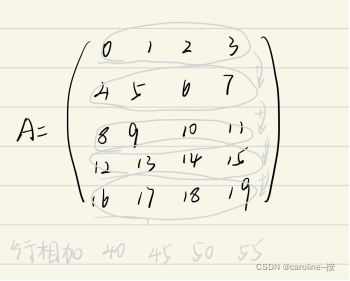 0 1 2 3
4 5 6 7
A= 8 9 10 11
12 13 14 15
16 17 18 19
行相加 40 45 50 55
CSDN @caroline~按